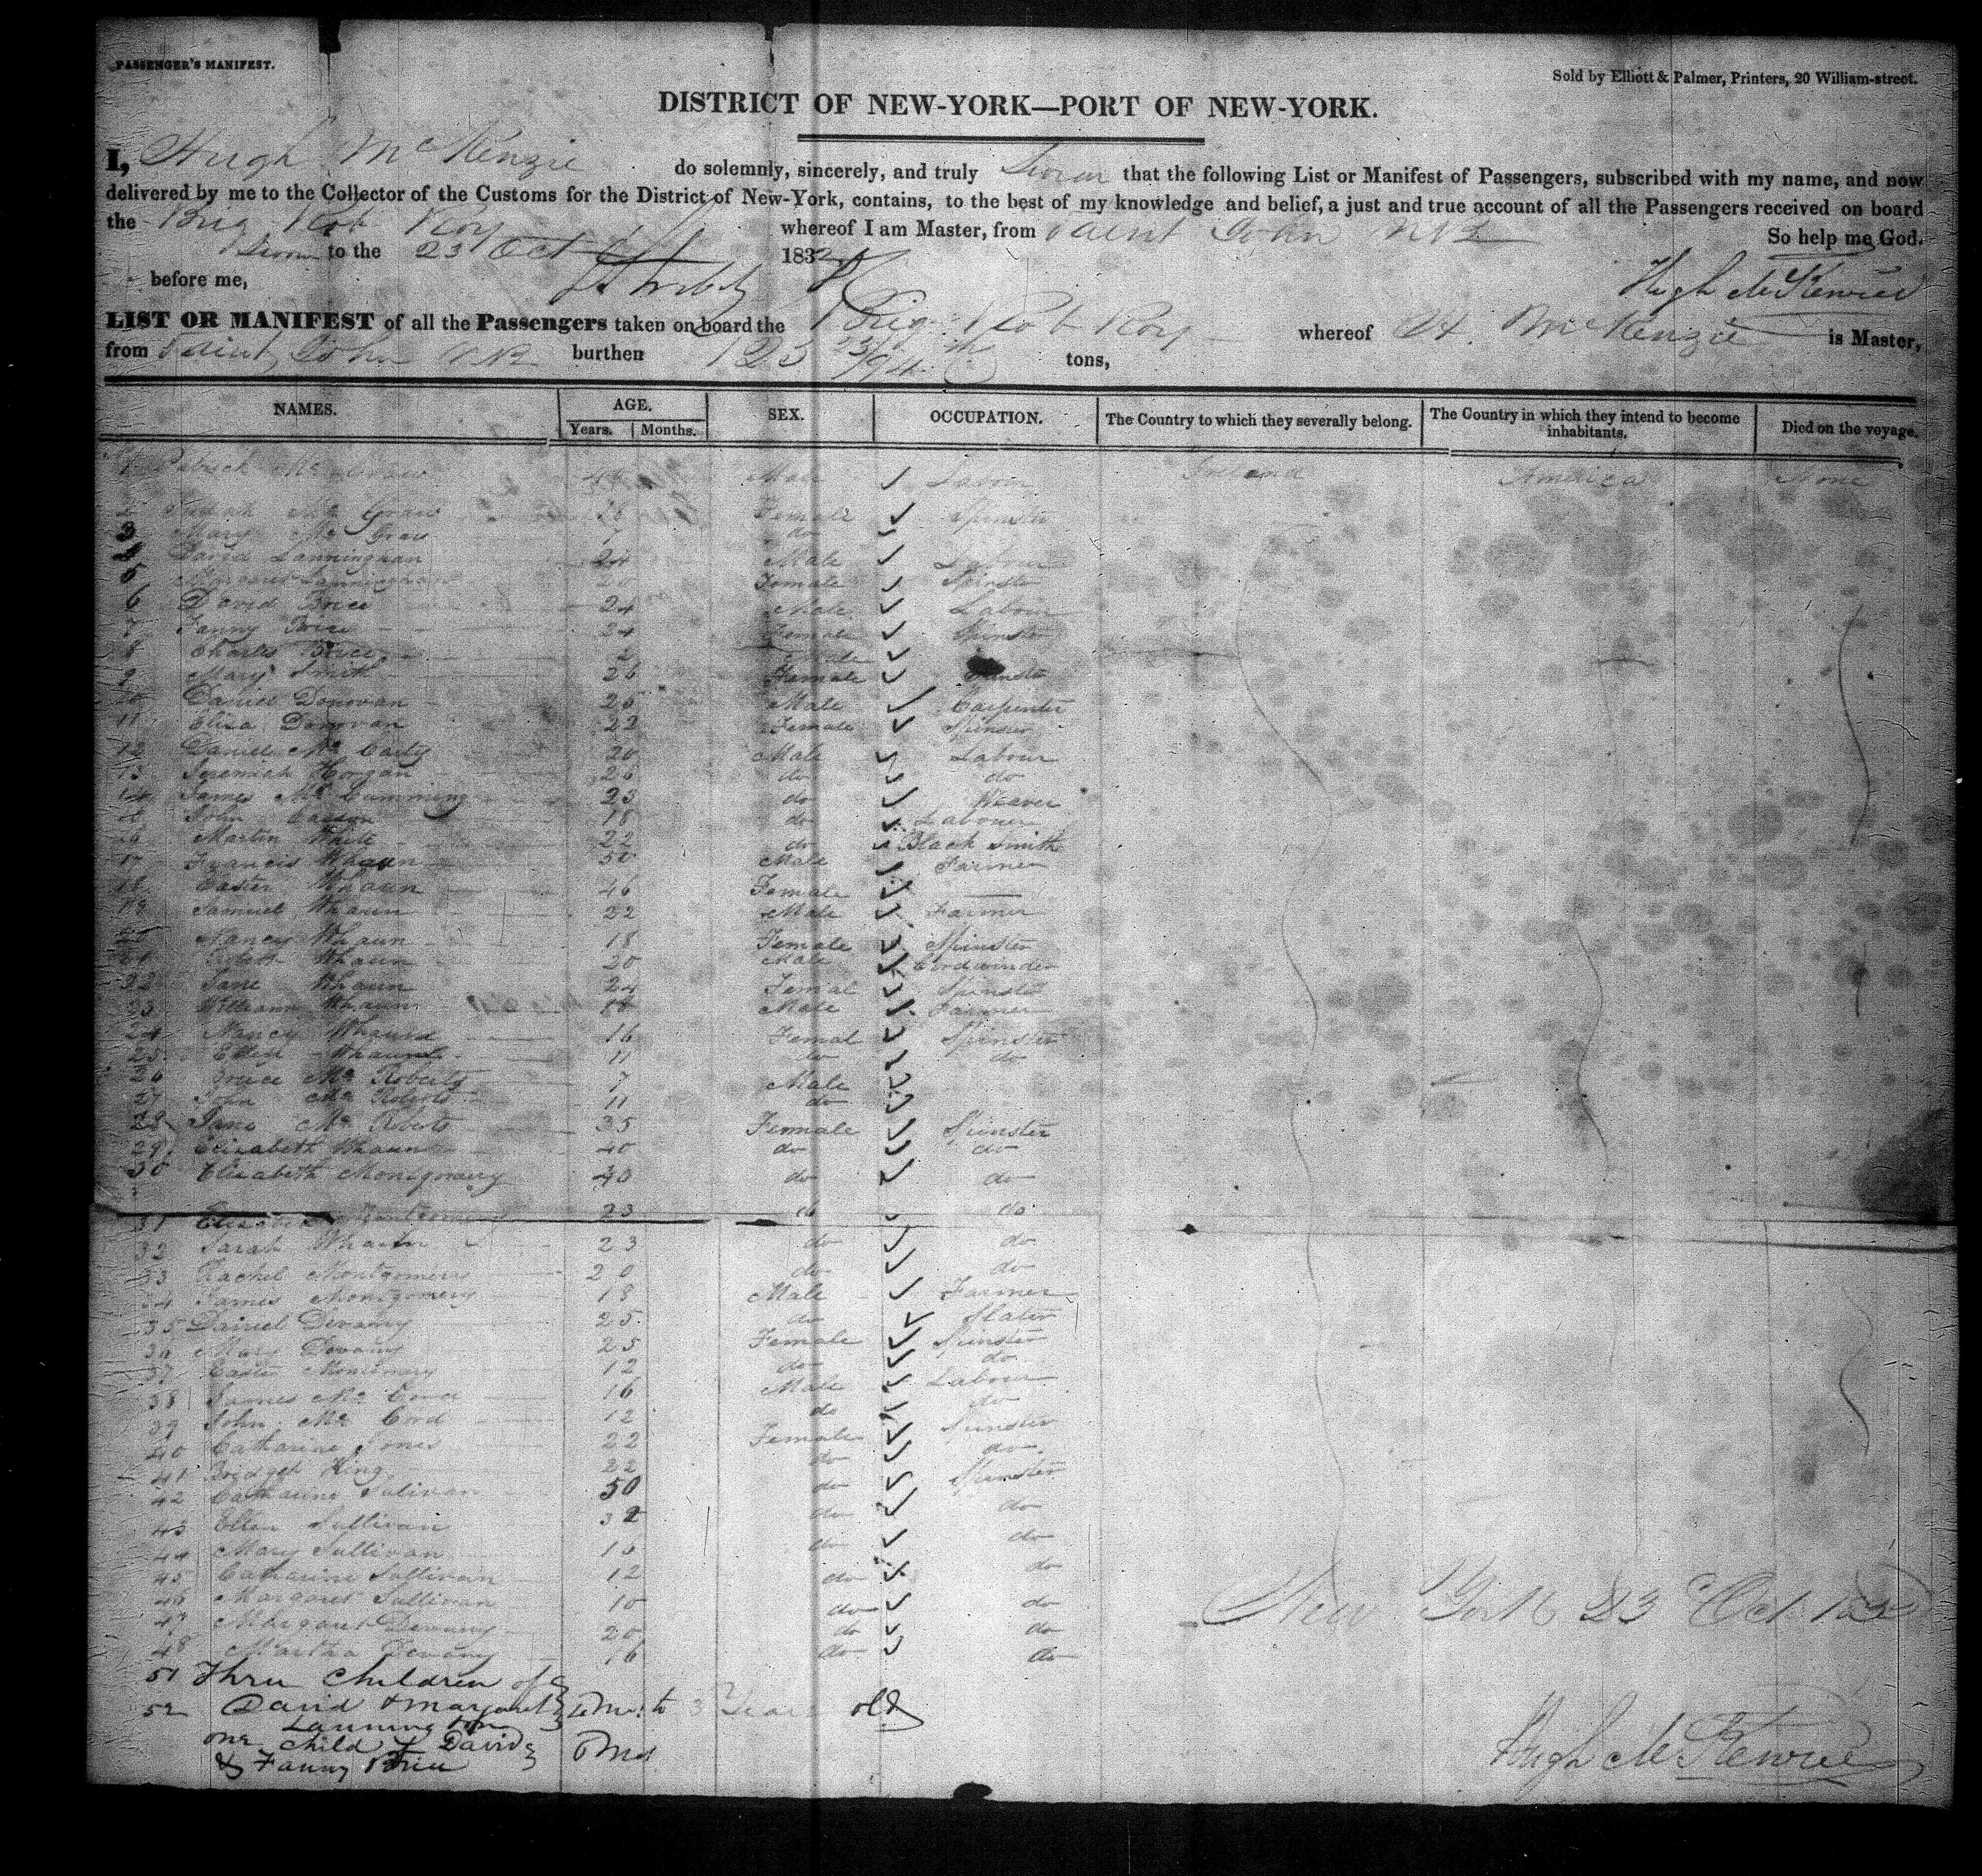 PASSENGER'S MANIFEST.
Sold by Elliott & Palmer, Printers, 20 William-street.
DISTRICT OF NEW-YORK—PORT OF NEW-YORK.
I, Hugh McKenzie do solemnly, sincerely, and truly Swear that the following List or Manifest of Passengers, subscribed with my name, and now
delivered by me to the Collector of the Customs for the District of New-York, contains, to the best of my knowledge and belief, a just and true account of all the Passengers received on board
the Brig Rob Roy whereof I am Master, from Saint John NB So help me God.
Sworn to the 23 Oct 1832
before me, Hugh McKenzie
LIST OR MANIFEST of all the Passengers taken on board the Brig Rob Roy whereof H. McKenzie is Master,
from Saint John NB burthen tons,
NAMES. AGE. Years. Months. SEX. OCCUPATION. The Country to which they severally belong. The Country in which they intend to become inhabitants. Died on the voyage.
1 Patrick Mc Graw Male Labour Ireland America None
2 Mc Graw Female Spinster
3 Mary Mc Graw 7 do
4 David Lanningham 24 Male Labour
5 Margaret Lanningham Female Spinster
6 David Price 24 Male Labour
7 Fanny Price 24 Female Spinster
8 Charles Price 2
9 Mary Smith 26 Female Spinster
10 Daniel Donovan 26 Male Carpenter
11 Eliza Donovan 22 Female Spinster
12 Daniel Mc Carty 20 Male Labour
13 Jeremiah Horgan 26 do do
14 James Mc Cumming 23 do Weaver
15 John 18 do Labourer
16 Martin White 22 do Black Smith
17 Francis Whaun 50 Male Farmer
18 Easter Whaun 46 Female —
19 Samuel Whaun 22 Male Farmer
20 Nancy Whaun 18 Female Spinster
21 Whaun 20 Male Cordwinder
22 Jane Whaun 24 Femal Spinster
23 William Whaun Male Farmer
24 Nancy Whaun 16 Femal Spinster
25 Ellen Whaun 11 do do
26 Mc Roberts 7 Male
27 John Mc Roberts 11 do
28 Jane Mc Roberts 35 Female Spinster
29 Elisabeth Whaun 40 do do
30 Elisabeth Montgomery do do
31 Elisabeth Montgomery 23 do do
32 Sarah Whaun 23 do do
33 Rachel Montgomery 20 do do
34 James Montgomery 18 Male Farmer
35 Daniel Devany 25 do Slater
36 Mary Devany 25 Female Spinster
37 Easter 12 do do
38 James Mc Cord 16 Male Labour
39 John Mc Cord 12 do do
40 Catharine Jones 22 Female Spinster
41 Bridget King 22 do do
42 Catharine Sulivan 50 do Spinster
43 Ellen Sullivan 32 do do
44 Mary Sullivan do do
45 Catharine Sullivan 12 do do
46 Margaret Sullivan 10 do do
47 Margaret Devany 20 do do
48 Martha Devany 16 do do
New York 23 Oct 1832
51 Three Children of
52 David & Margaret to 3 Years old
Lannington
one child of David
& Fanny Price
Hugh McKenzie